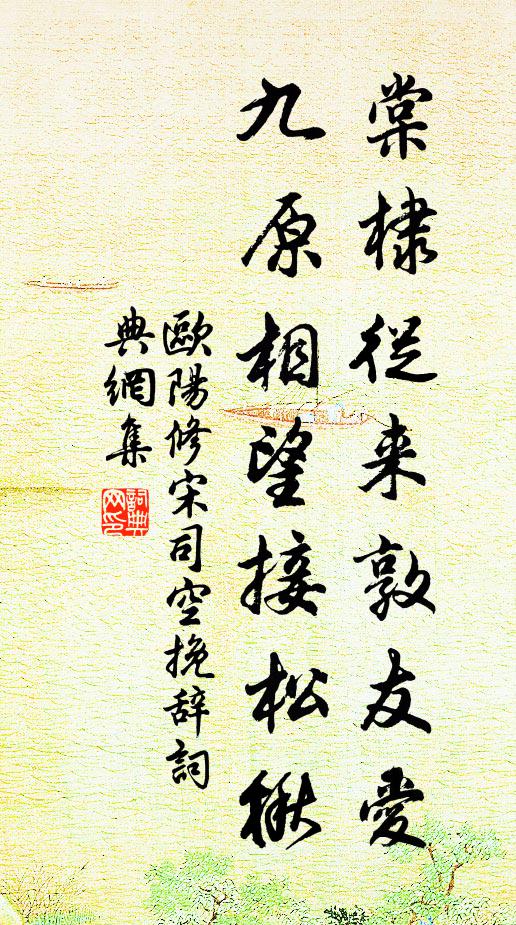 棠棣從来敦友愛
九原相望接松楸
歐陽修宋司空挽辞詞
典網集
詞典
网印